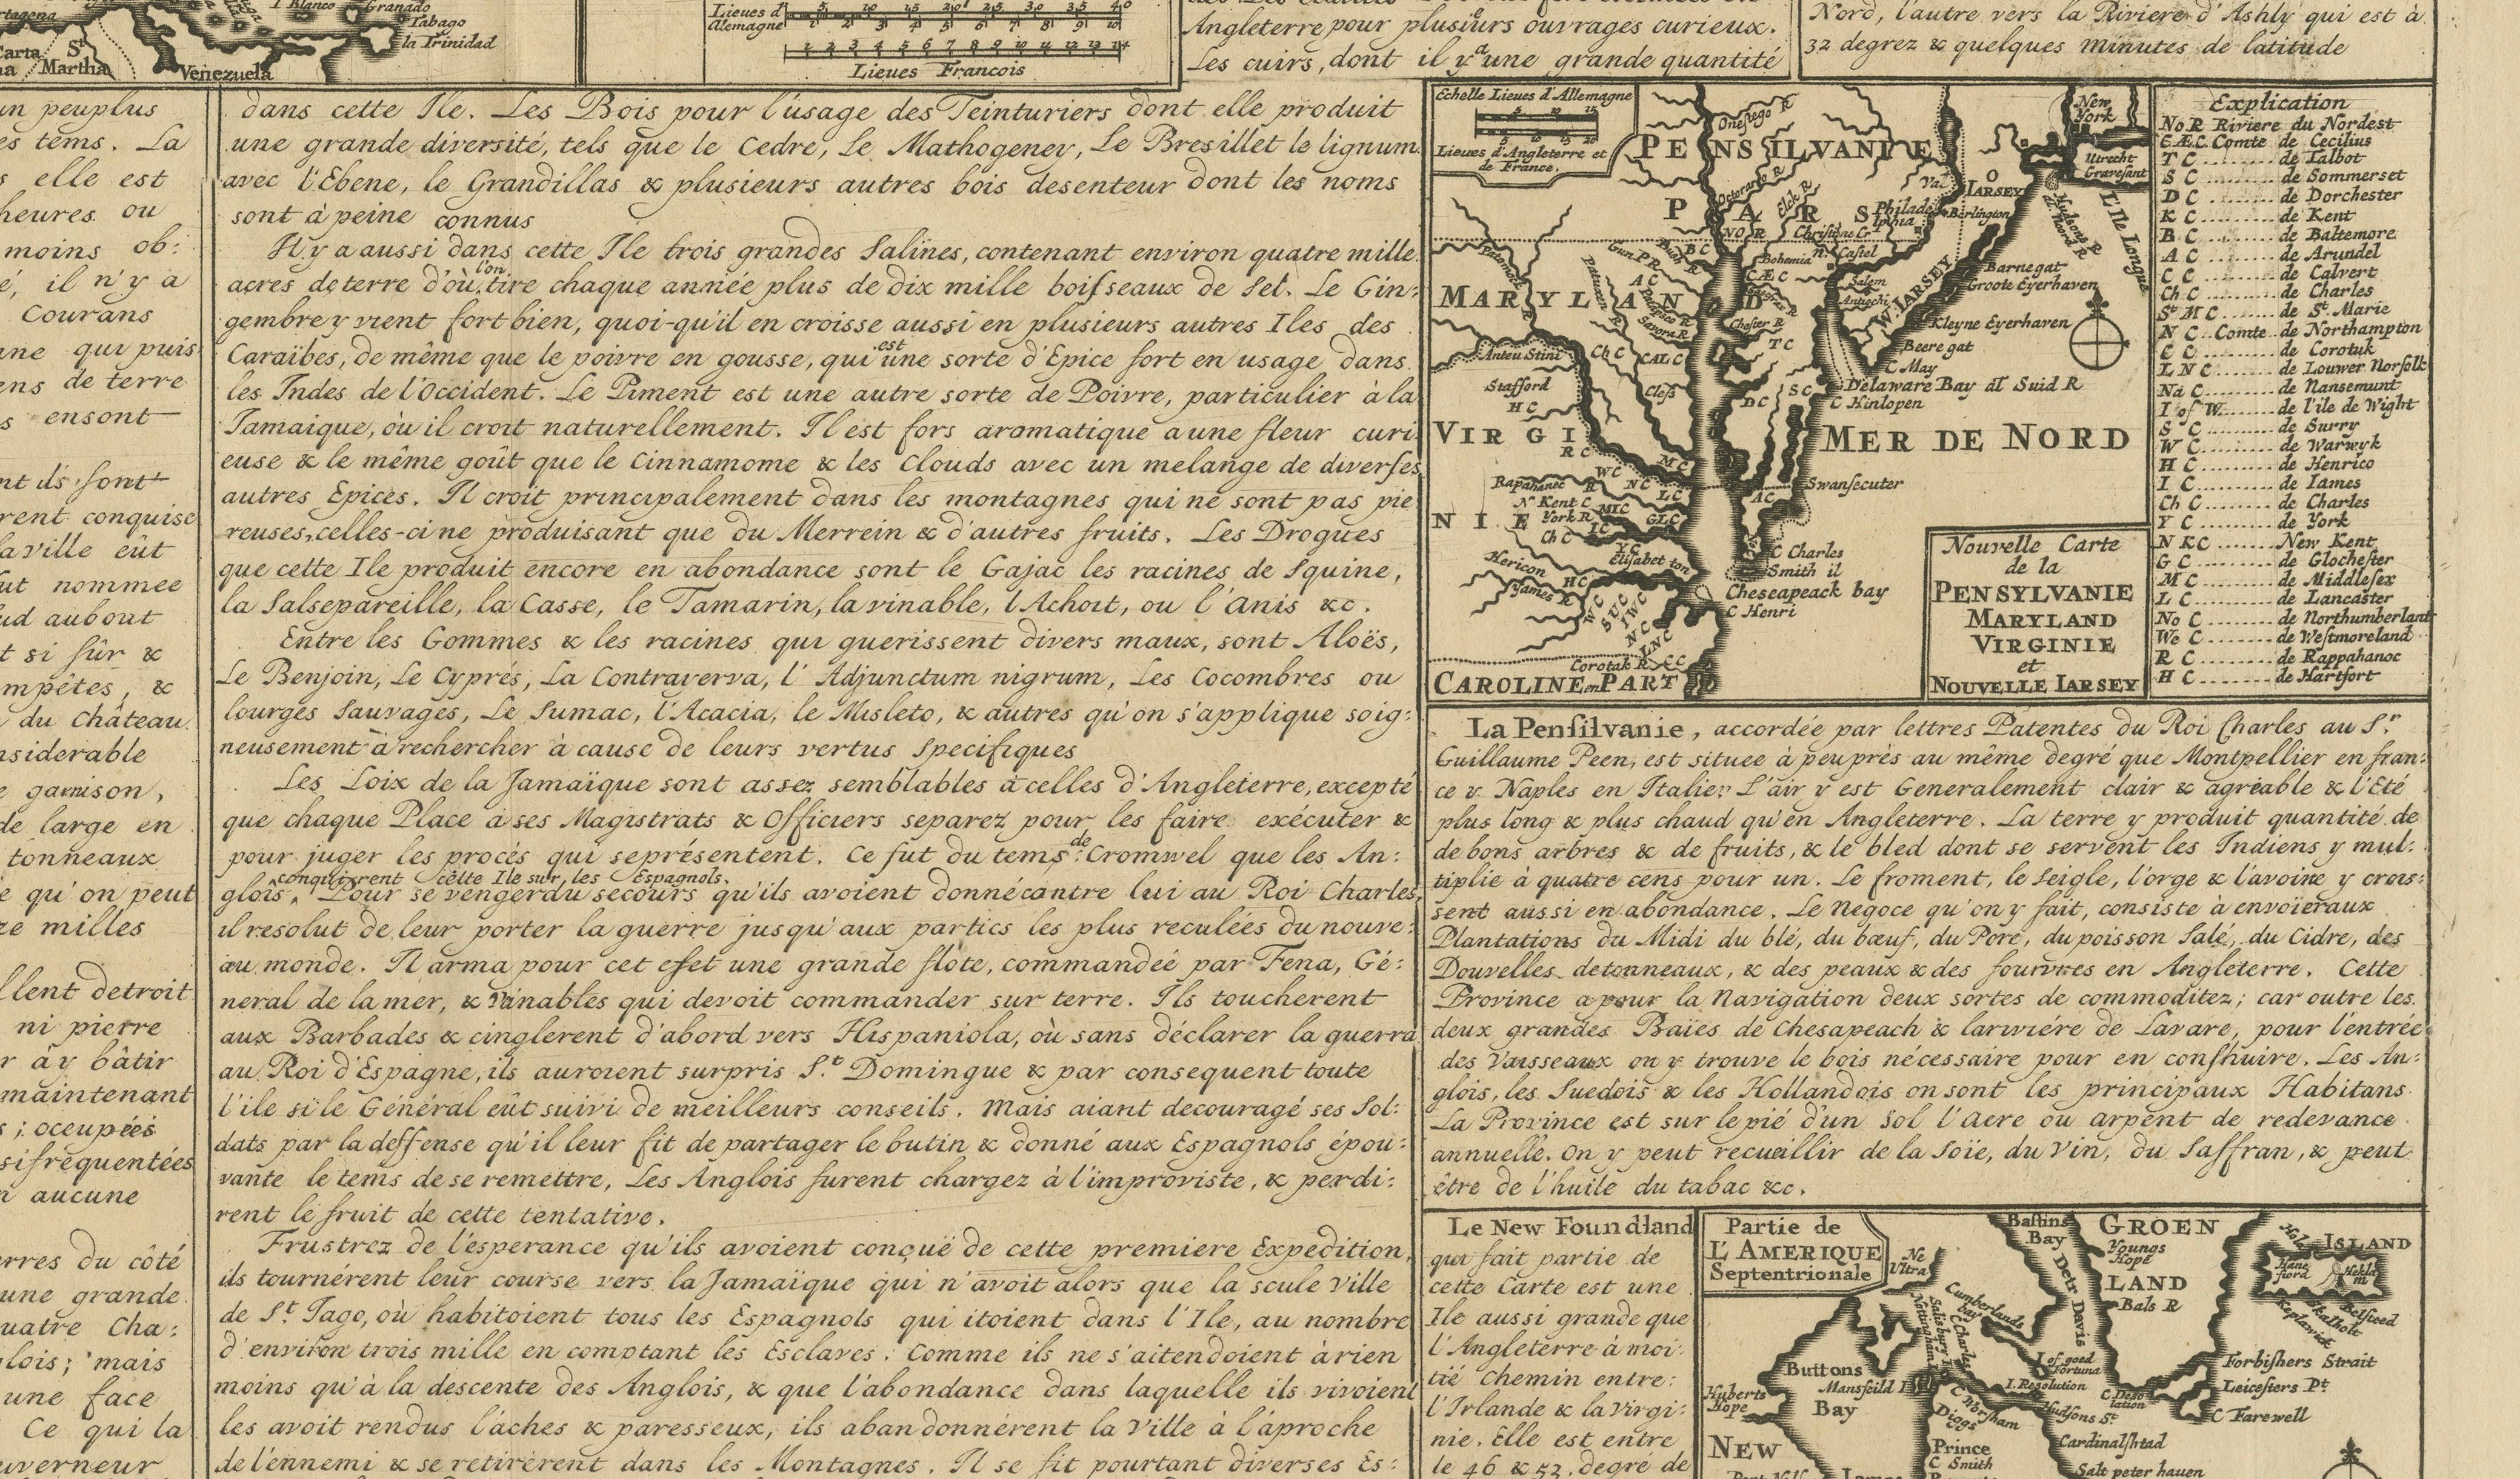 I Blanco
Granado
Tabago
la Trinidad
Carta
St
Martha
Venezuela
Lieues d'
Alemagne
5 10 15 20 25 30 35 40
1 2 3 4 5 6 7 8 9 10
1 2 3 4 5 6 7 8 9 10 11 12 13 14
Lieues Francois
Angleterre pour plusieurs ouvrages curieux.
Les cuirs, dont il y a une grande quantité
Nord, l'autre vers la Riviere d'Ashly qui est à
32 degrez & quelques minutes de latitude
un peuplus
es tems. La
s elle est
heures ou
moins ob:
é, il n'y a
Courans
ne qui puis
ens de terre
s ensont
nt ils sont
rent conquise
la ville eût
ut nommee
ud au bout
t si sûr &
mpêtes, &
du château
nsiderable
e garnison,
de large en
tonneaux
e qu'on peut
re milles
llent detroit
ni pierre
r à y bâtir
maintenant
s; oceupées
si frequentées
n aucune
erres du côté
une grande
uatre Cha:
lois; mais
une face
Ce qui la
uverneur
dans cette Ile. Les Bois pour l'usage des Teinturiers dont elle produit
une grande diversité, tels que le Cedre, Le Mathogeney, Le Bresillet le lignum
avec l'Ebene, le Grandillas & plusieurs autres bois desenteur dont les noms
sont à peine connus
Il y a aussi dans cette Ile trois grandes Salines, contenant environ quatre mille
acres de terre d'où l'on tire chaque année plus de dix mille boisseaux de Sel. Le Gin:
gembre y vient fort bien, quoi-qu'il en croisse aussi en plusieurs autres Iles des
Caraïbes, de même que le poivre en gousse, qui est une sorte d'Epice fort en usage dans
les Indes de l'Occident. Le Piment est une autre sorte de Poivre, particulier à la
Jamaique, où il croit naturellement. Il est fors aromatique a une fleur curi
euse & le même goût que le Cinnamome & les Clouds avec un melange de diverses
autres Epices. Il croit principalement dans les montagnes qui ne sont pas pie
reuses, celles-ci ne produisant que du Merrein & d'autres fruits. Les Drogues
que cette Ile produit encore en abondance sont le Gajac les racines de Squine,
la Salsepareille, la Casse, le Tamarin, la vinable, l'Achoit, ou l'Anis &c.
Entre les Gommes & les racines qui guerissent divers maux, sont Aloës,
Le Benjoin, Le Cyprés, La Contraverva, l'Adjunctum nigrum, Les Cocombres ou
lourges Sauvages, Le Sumac, l'Acacia, le Misleto, & autres qu'on s'applique soig:
neusement à rechercher à cause de leurs vertus specifiques
Les Loix de la Jamaïque sont assez semblables à celles d'Angleterre, excepté
que chaque Place a ses Magistrats & Officiers separez pour les faire exécuter &
pour juger les procés qui se présentent. Ce fut du tems de Cromwel que les An:
glois conquirent cette Ile sur les Espagnols. Pour se venger du secours qu'ils avoient donné contre lui au Roi Charles,
il resolut de leur porter la guerre jusqu'aux partics les plus reculées du nouve:
au monde. Il arma pour cet efet une grande flote, commandée par Fena, Gé:
neral de la mer, & Vanables qui devoit commander sur terre. Ils toucherent
aux Barbades & cinglerent d'abord vers Hispaniola, où sans déclarer la guerra
au Roi d'Espagne, ils auroient surpris St. Domingue & par consequent toute
l'ile si le Général eût suivi de meilleurs conseils. Mais aiant decouragé ses Sol:
dats par la deffense qu'il leur fit de partager le butin & donné aux Espagnols épou:
vante le tems de se remettre, Les Anglois furent chargez à l'improviste, & perdi:
rent le fruit de cette tentative.
Frustrez de l'esperance qu'ils avoient conçuë de cette premiere Expedition,
ils tournérent leur course vers la Jamaïque qui n'avoit alors que la scule Ville
de St. Jago, où habitoient tous les Espagnols qui itoient dans l'Ile, au nombre
d'environ trois mille en comptant les Esclaves. Comme ils ne s'aitendoient à rien
moins qu'à la descente des Anglois, & que l'abondance dans laquelle ils vivoient
les avoit rendus lâches & paresseux, ils abandonnérent la Ville à l'aproche
de l'ennemi & se retirérent dans les Montagnes. Il se fit pourtant diverses Es:
Echelle Lieues d'Allemagne
5 10 15
5 10 15 20
Lieues d'Angleterre et
de France.
PENSILVANIE
PARS
Onestego R
Octoraro R
Elck R
New
York
Utrecht
Gravesant
O
IARSEY
Philade
lphia
Berlington
Hudsons R
L'Ile Longue
NO R
Christine Cr
n. Castel
Bohemia
Salem
Antiochi
W. IARSEY
Barnegat
Groote Eyerhaven
Kleyne Eyerhaven
Beere gat
C May
Delaware Bay al Suid R
C Hinlopen
MARYLAND
Patomak
Patuxen R
Gun P R
Bush R
B C
A C
CÆC
Savora R
Chester R
T C
Ch C
CALC
Clefs
D C
S C
Anteu Stini
Stafford
H C
VIRGINIE
R C
MER DE NORD
W C
M C
N C
L C
A C
Swansecuter
Rapahanec R
N Kent C
York R
MIC
GLC
I C
Ch C
Y C
Elisabet ton
Hericon
H C
James R
W C
SUC
IWC
N C
LNC
C Charles
Smith il
Cheseapeack bay
C Henri
Corotak R
C C
CAROLINE en PART
Nouvelle Carte
de la
PENSYLVANIE
MARYLAND
VIRGINIE
et
NOUVELLE IARSEY
Explication
No R Riviere du Nordest
CÆC Comte de Cecilius
T C ........ de Talbot
S C ........ de Sommerset
D C ........ de Dorchester
K C ........ de Kent
B C ........ de Baltemore
A C ........ de Arundel
C C ........ de Calvert
Ch C ........ de Charles
St M C ........ de St. Marie
N C .. Comte de Northampton
C C ........ de Corotuk
L N C ........ de Louwer Norfolk
Na C ........ de Nansemunt
I of W ........ de l'ile de Wight
S C ........ de Surry
W C ........ de Warwyk
H C ........ de Henrico
I C ........ de Iames
Ch C ........ de Charles
Y C ........ de York
N K C ........ New Kent
G C ........ de Glochester
M C ........ de Middlesex
L C ........ de Lancaster
No C ........ de Northumberlant
We C ........ de Westmoreland
R C ........ de Rappahanoc
H C ........ de Hartfort
La Pensilvanie, accordée par lettres Patentes du Roi Charles au Sr.
Guillaume Peen, est situee à peuprès au même degré que Montpellier en fran:
ce & Naples en Italie. L'air y est Generalement clair & agréable & l'Eté
plus long & plus chaud qu'en Angleterre. La terre y produit quantité de
de bons arbres & de fruits, & le bled dont se servent les Indiens y mul:
tiplie à quatre cens pour un. Le froment, le Seigle, l'orge & l'avoine y crois:
sent aussi en abondance. Le Negoce qu'on y fait, consiste à envoïer aux
Plantations du Midi du blé, du bœuf, du Porc, du poisson Salé, du Cidre, des
Douvelles de tonneaux, & des peaux & des fourures en Angleterre. Cette
Province a pour la Navigation deux sortes de commoditez; car outre les
deux grandes Baïes de Chesapeach & la riviére de Lavare, pour l'entrée
des Vaisseaux on y trouve le bois nécessaire pour en construire. Les An:
glois, les Suedois & les Hollandois on sont les principaux Habitans
La Province est sur le pié d'un Sol l'Acre ou arpent de redevance
annuelle. On y peut recueillir de la Soïe, du Vin, du Saffran, & peut
être de l'huile du tabac &c.
Le New Foundland
qui fait partie de
cette Carte est une
Ile aussi grande que
l'Angleterre à moi:
tié Chemin entre:
l'Irlande & la Virgi:
nie. Elle est entre
le 46 & 52. degré de
Partie de
L'AMERIQUE
Septentrionale
Ne
Ultra
Baffins
Bay
GROEN
LAND
Youngs
Hope
Bals R
Detr Davis
ISLAND
Hol
Hane
fiord
Hekla
m
Belfeed
Skalholt
Keplawick
Cumberlands
bay
Salisbury
Nottingham
C Charles
Buttons
Bay
Mansfeild I
Huberts
Hope
I of good
Fortuna
I. Resolution
C Deso
lation
Forbishers Strait
Leicesters Pt
C Farewell
C Worsham
Diggs
Hudsons St
NEW
Prince
C Smith
Cardinalshtad
Salt peter hauen
Iames